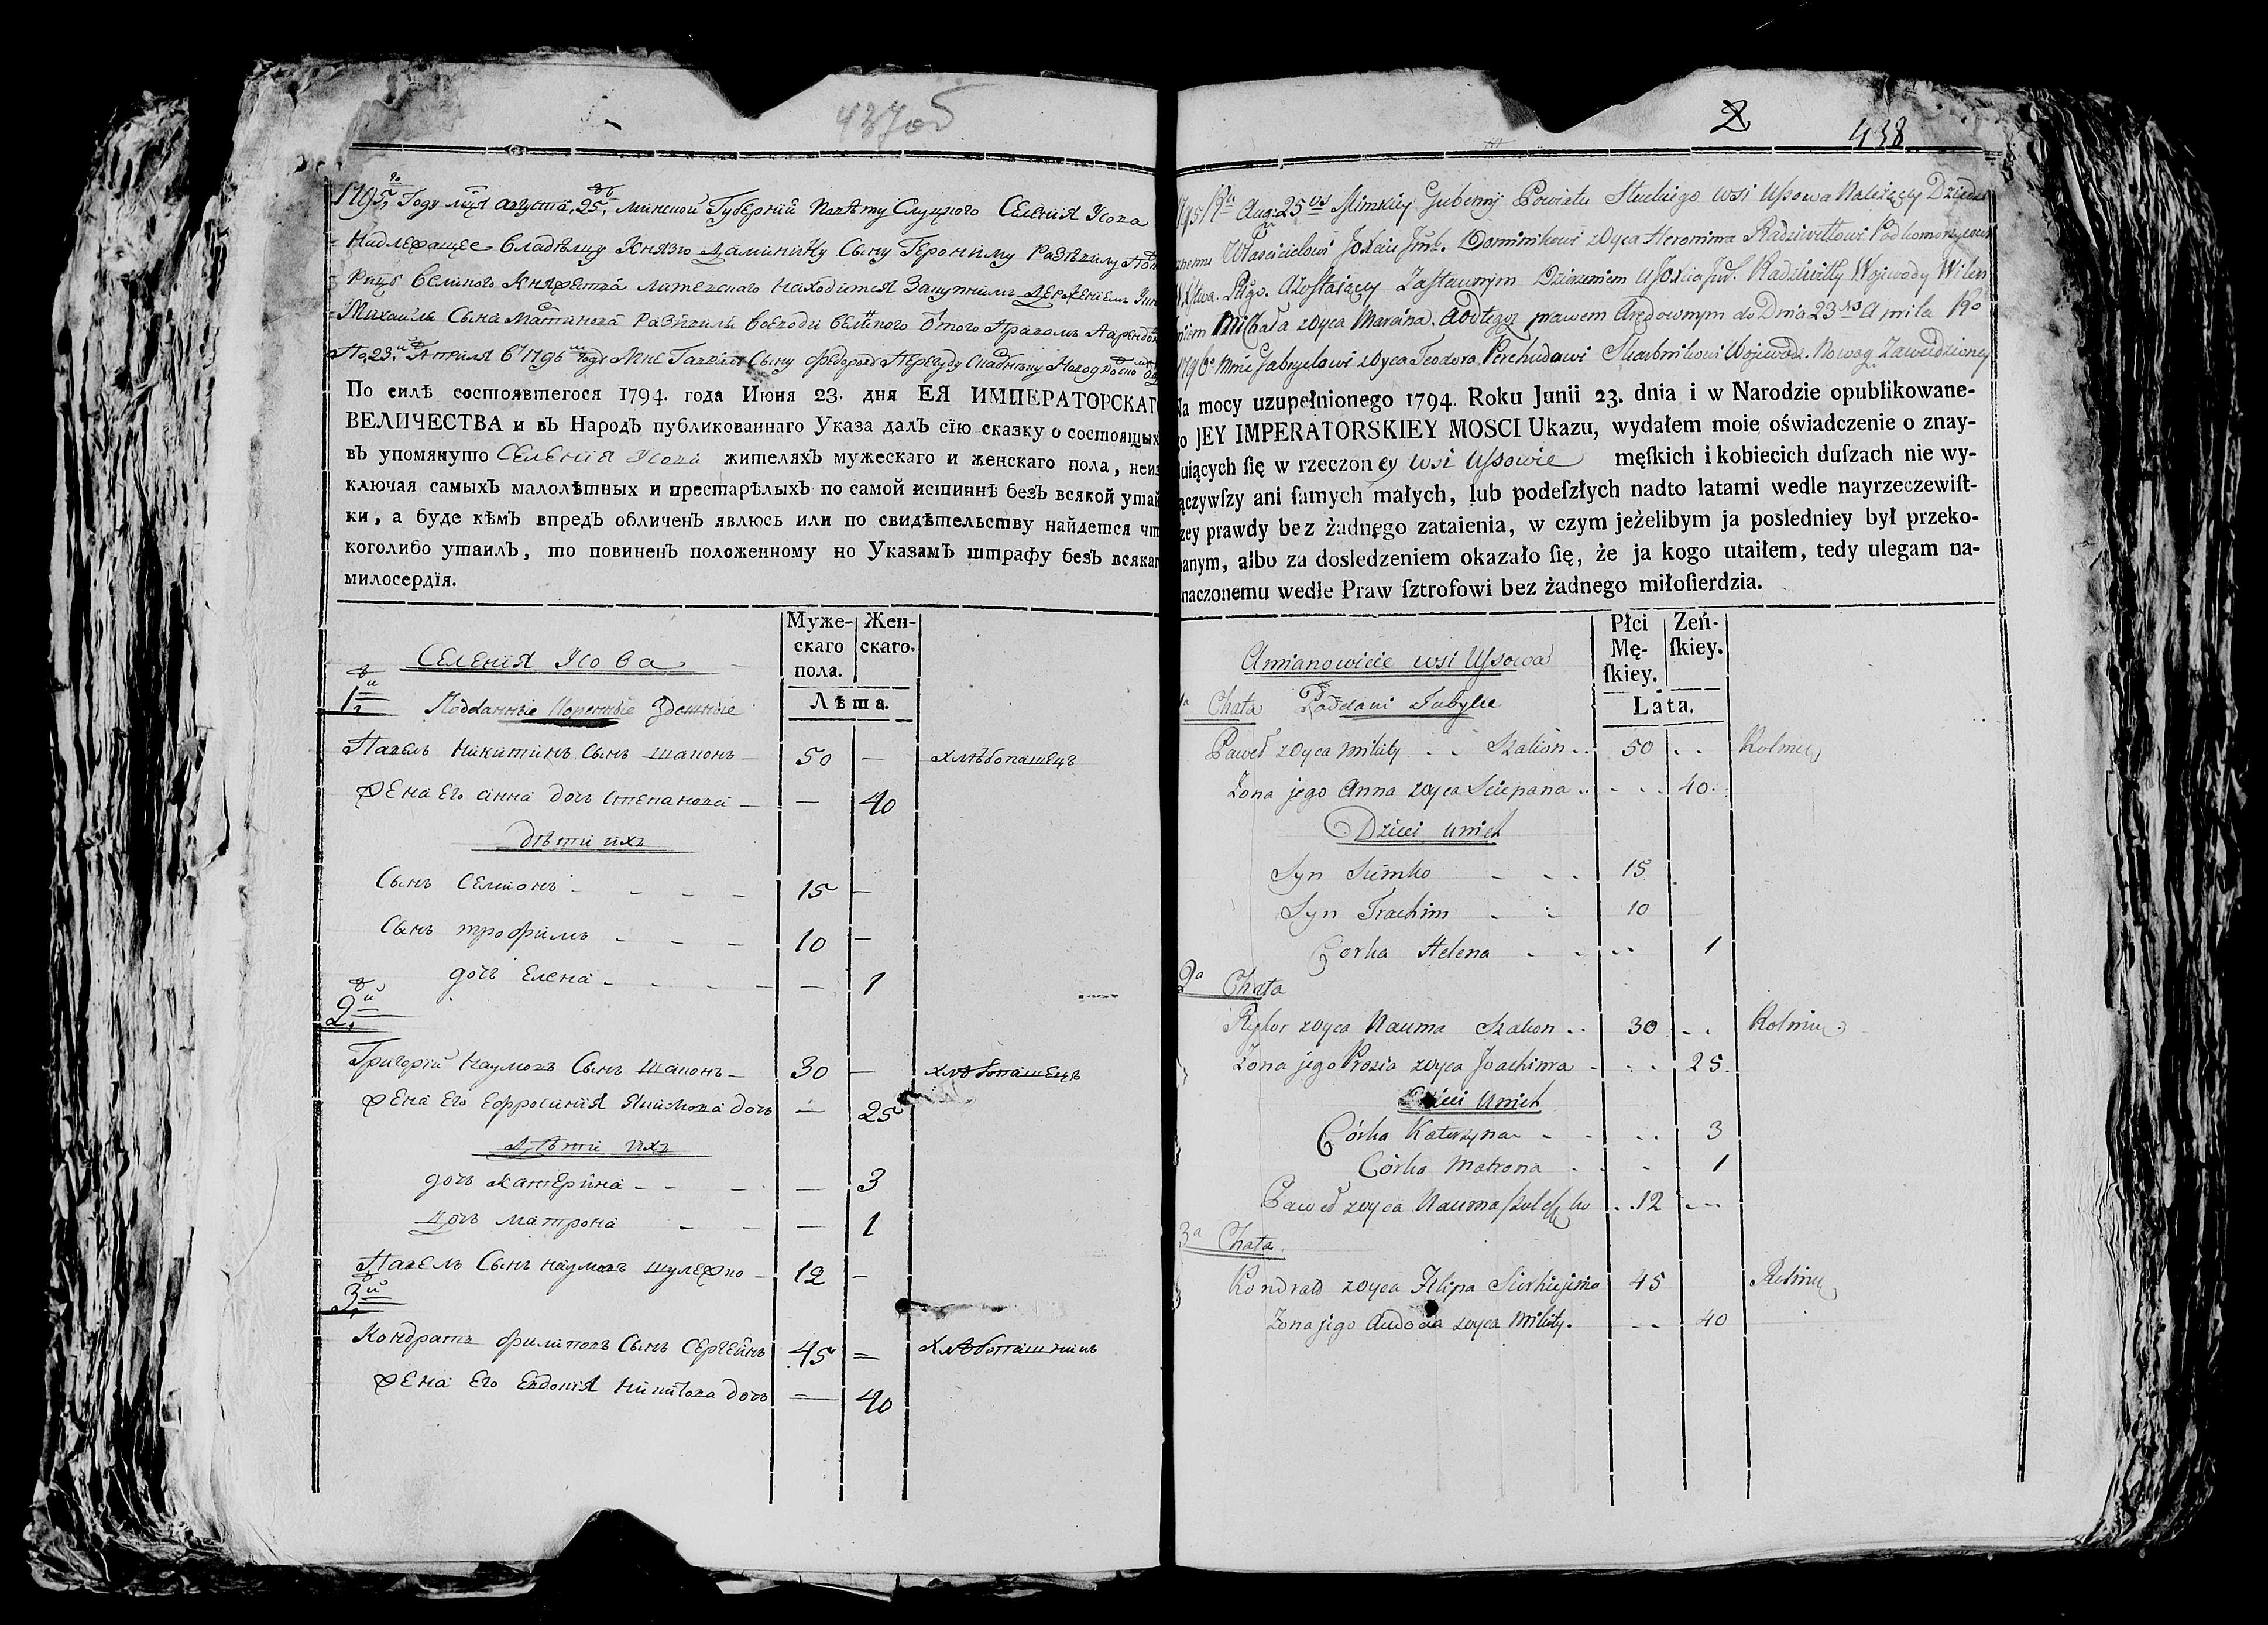 437об
1795 Году мца августа 25 минской Губернии Повѣту Слуцкого Селения Усова
Надлежащее владѣлцу Князю Даминику Сыну Герониму Радзивилу
великого Княжества литевскаго находится Закупнимъ Держениемъ
Михаила Сына Мартинова Радзивила воеводи
По 23 Априля 1796 году Мне Гавриле Сыну Федорову Перегуду
По силѣ состоявшегося 1794. года Июня 23. дня ЕЯ ИМПЕРАТОРСКАГО
ВЕЛИЧЕСТВА и въ Народъ публикованнаго Указа далъ сїю сказку о состоящых
въ упомянуто Селения Усова жителяхъ мужескаго и женскаго пола, неиз
ключая самыхъ малолѣтных и престарѣлыхъ по самой истиннѣ безъ всякой утай
ки, а буде кѣмъ впредъ обличенъ явлюсь или по свидѣтельству найдется чт
коголибо утаилъ, то повиненъ положенному по Указамъ штрафу безъ всякаг
милосердїя.
Муже-
скаго
пола.
Жен-
скаго.
Лѣта.
Селения Усова
1
Подданные Коренные Здешные
Павелъ Никитинъ Сынъ Шапонъ 50 — хлѣбопашецъ
жена Его анна дочь Степанова — 40
дѣти ихъ
Сынъ Семионъ 15 —
Сынъ трофимъ 10 —
дочь Елена — 1
2
Григорий Наумовъ Сынъ Шапонъ 30 — хлѣбопашецъ
жена Его Ефросиния Якимова дочь — 25
дѣти ихъ
дочь катерина — 3
дочь матрона — 1
Павелъ Сынъ наумовъ шулежко 12 —
3
Кондратъ филиповъ Сынъ Сергейнъ 45 = хлѣбопашнинъ
жена Его Евдокия Никитова дочь — 40
2
438
1795 Ru Aug: 25 Minskiey Gubernij Powiatu Słuckiego wsi Ussowa Należącey Dziedzi
cznemu Właścicielowi Dominikowi zOyca Heronima Radziwiłłowi Podkomorzemu
Zostającey Zastawnym Dzierzeniem Radziwiłły Wojwody Wilen
Michała zOyca Marcina. prawem Arędownym do Dnia 23 Aprila Ro
1796 Mnie Gabryelowi zOyca Teodora Perehudowi Skarbnikowi Wojewodz. Nowog. Zawiedzioney
Na mocy uzupełnionego 1794. Roku Junii 23. dnia i w Narodzie opublikowane-
go JEY IMPERATORSKIEY MOSCI Ukazu, wydałem moie oświadczenie o znay-
duiących ſię w rzeczoney wsi Ussowie męſkich i kobiecich duſzach nie wy-
łączywſzy ani ſamych małych, lub podeſzłych nadto latami wedle nayrzeczewiſt-
szey prawdy bez żadnego zataienia, w czym jeżelibym ja posledniey był przeko-
nanym, albo za dosledzeniem okazało ſię, że ja kogo utaiłem, tedy ulegam na-
znaczonemu wedle Praw ſztrofowi bez żadnego miłoſierdzia.
Płci
Mę-
ſkiey.
Zeń-
ſkiey.
Lata.
Amianowicie wsi Ussowa
1a Chata Poddani Tubylce
Paweł zOyca Mikity Szalion 50 Rolnik
Zona jego Anna zOyca Sciepana 40
Dzieci unich
Syn Siemko 15
Syn Trachim 10
Corka Helena 1
2a Chata
Ryhor zOyca Nauma Szalion 30 Rolnik
Zona jego Prosia zOyca Joachima 25
Dzieci Unich
Córka Katerzyna 3
Córka Matrona 1
Paweł zOyca Nauma 12
3a Chata
Kondrad zOyca Filipa 45 Rolnik
Zona jego Audocia zOyca Mikity. 40